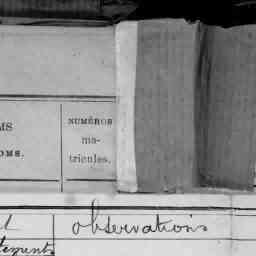 MS
OMS.
NUMÉROS
ma-
tricules.
observations